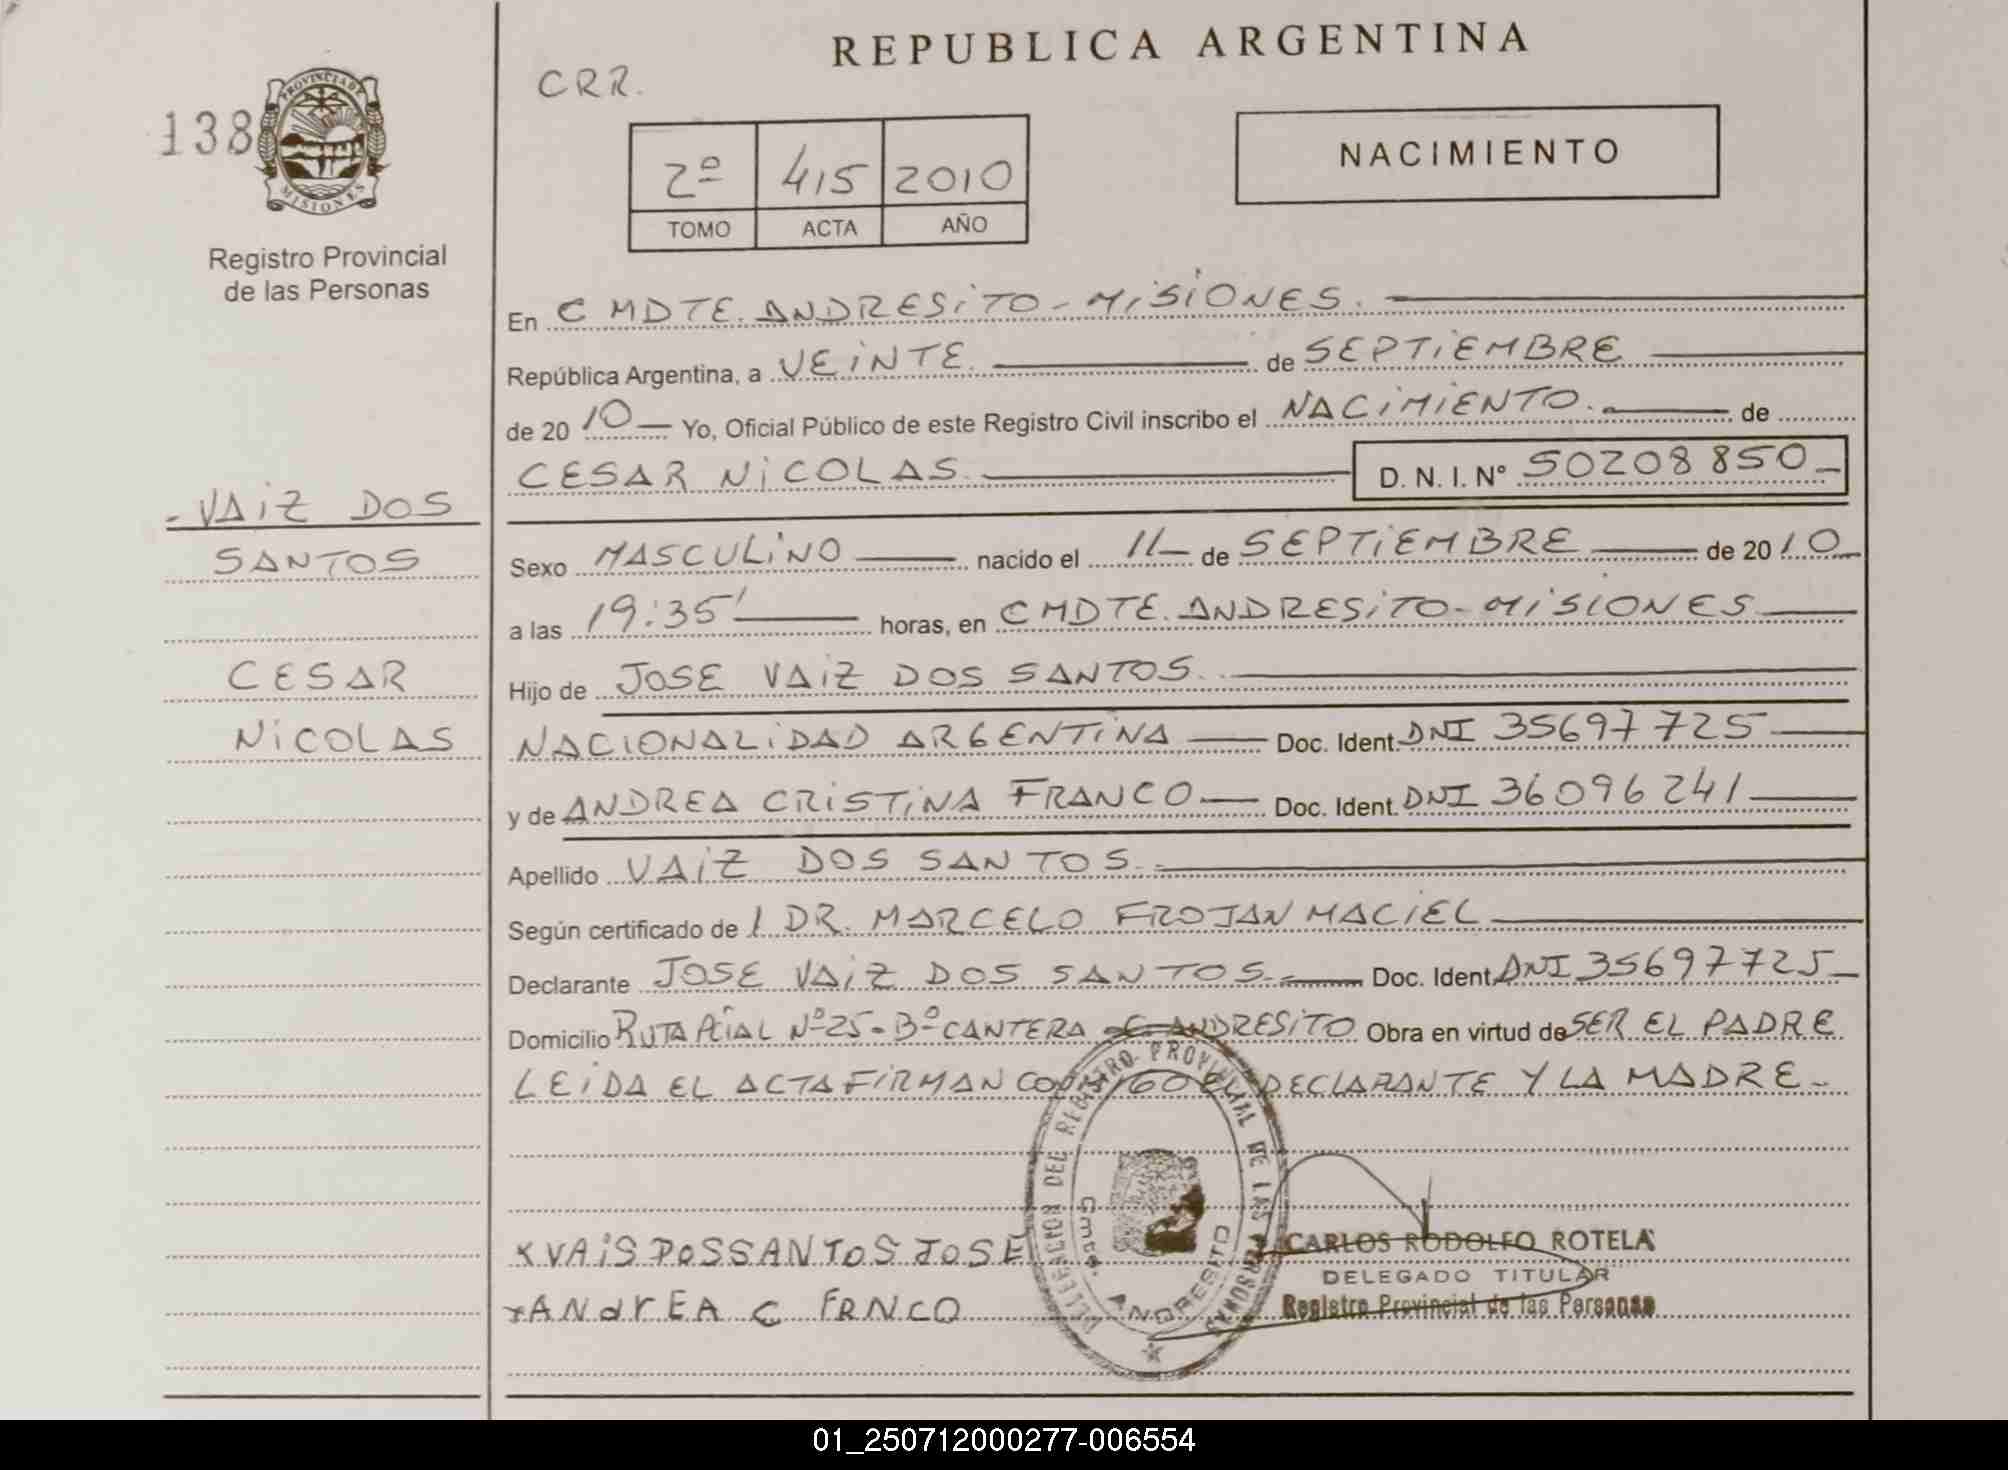 REPUBLICA ARGENTINA
CRR.
138
PROVINCIA DE
MISIONES
Registro Provincial
de las Personas
2º 415 2010
TOMO ACTA AÑO
NACIMIENTO
En CMDTE. ANDRESiTO - MiSiONES.
República Argentina, a VEiNTE. de SEPTiEMBRE
de 20 10 Yo, Oficial Público de este Registro Civil inscribo el NACiMiENTO. de
CESAR NiCOLAS. D. N. I. Nº 50208850
- VAiZ DOS
SANTOS
CESAR
NiCOLAS
Sexo MASCULiNO nacido el 11 de SEPTiEMBRE de 20 10
a las 19:35' horas, en CMDTE. ANDRESiTO - MiSiONES
Hijo de JOSE VAiZ DOS SANTOS.
NACiONALiDAD ARGENTiNA Doc. Ident. DNI 35697725
y de ANDREA CRiSTiNA FRANCO Doc. Ident. DNI 36096241
Apellido VAiZ DOS SANTOS.
Según certificado de / DR. MARCELO FROJAN MACiEL
Declarante JOSE VAiZ DOS SANTOS. Doc. Ident. DNI 35697725
Domicilio RUTA PCiAL Nº 25 - Bº CANTERA - C. ANDRESiTO Obra en virtud de SER EL PADRE
LEiDA EL ACTA FiRMAN CONMiGO EL DECLARANTE Y LA MADRE -
DELEGACION DEL REGISTRO PROVINCIAL DE LAS PERSONAS
Cmte. ANDRESITO
x VAiS DOSSANTOS JOSE
x ANdrEA C FRNCO
CARLOS RODOLFO ROTELA
DELEGADO TITULAR
Registro Provincial de las Personas
01_250712000277-006554